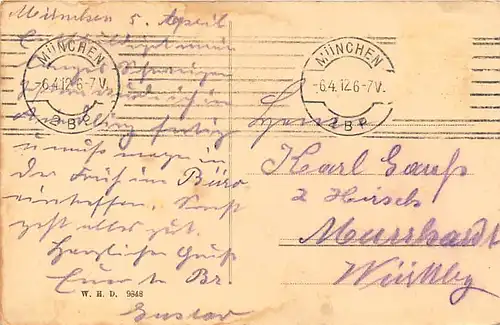 München 5. April
Entschuldigt mein
langes Schweigen
fertig
u. muss morgen in
der Früh im Büro
eintreffen. Sonst
geht alles gut.
Herzlichen Gruß
Euer tr. Br.
Gustav
W. H. D. 9848
MÜNCHEN
6.4.12.6-7V.
2 B P
MÜNCHEN
-6.4.12.6-7V.
2 B P
Herrn
Karl Gauß
z Hirsch
Murrhardt
Württbg